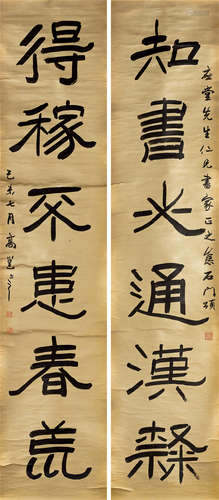 堂先生仁兄書家正之集石門頌
知書必通漢隸
得稼不患春荒
己未七月高邕